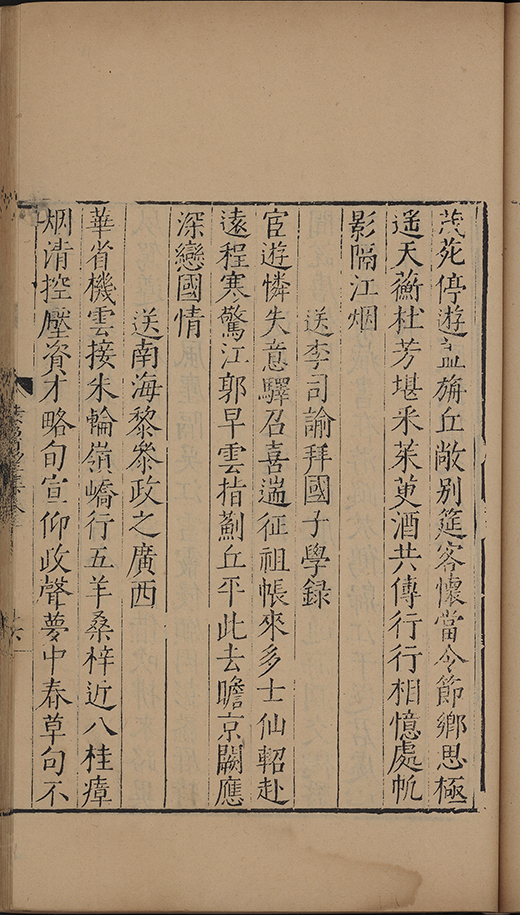 茂苑停遊盖旃丘敞別筵客懷當令節鄉思極
遥天蘅杜芳堪采茱萸酒共傳行行相憶處帆
影隔江烟
送李司諭拜國子學録
宦遊憐失意驛召喜遄征祖帳來多士仙軺赴
遠程寒驚江郭早雲指薊丘平此去瞻京闕應
深戀國情
送南海黎叅政之廣西
華省機雲接朱輪嶺嶠行五羊桑梓近八桂瘴
烟清控壓資才略旬宣仰政聲夢中春草句不